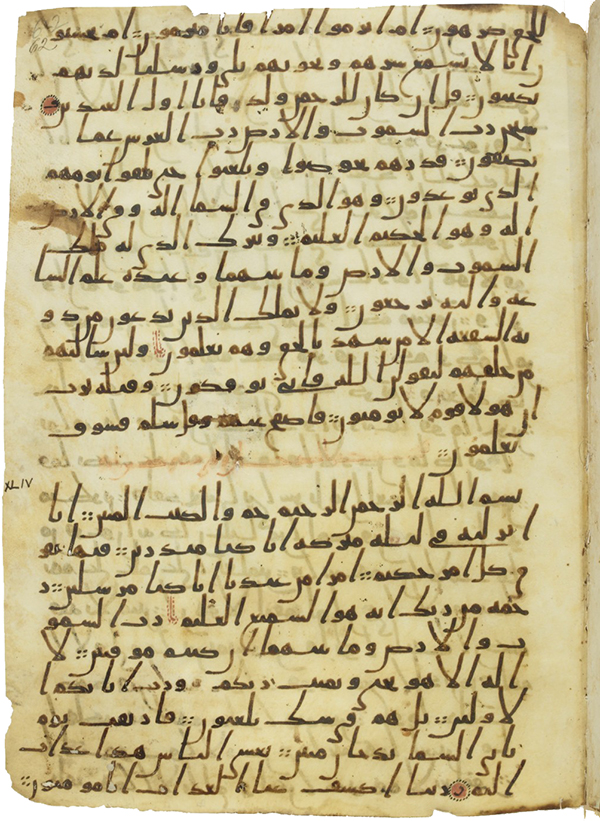 للحق كرهون ام ابرموا امرا فانا مبرمون ام يحسبون
انا لا نسمع سرهم ونجويهم بلى ورسلنا لديهم
يكتبون قل ان كان للرحمن ولد فانا اول العبدين
سبحن رب السموت والارض رب العرش عما
يصفون فذرهم يخوضوا ويلعبوا حتى يلقوا يومهم
الذي يوعدون وهو الذي في السما اله وفي الارض
اله وهو الحكيم العليم وتبرك الذي له ملك
السموت والارض وما بينهما وعنده علم السا
عه واليه ترجعون ولا يملك الذين يدعون من دو
نه الشفعه الا من شهد بالحق وهم يعلمون ولين سالتهم
من خلقهم ليقولن الله فانى يوفكون وقيله يرب
ان هولا قوم لا يومنون فاصفح عنهم وقل سلم فسوف
تعلمون
XLIV
بسم الله الرحمن الرحيم حم والكتب المبين انا
انزلنه في ليله مبركه انا كنا منذرين فيها يفر
ق كل امر حكيم امرا من عندنا انا كنا مرسلين ر
حمه من ربك انه هو السميع العليم رب السمو
ت والارض وما بينهما ان كنتم موقنين لا
اله الا هو يحي ويميت ربكم ورب ابايكم ا
لاولين بل هم في شك يلعبون فارتقب يوم
تاتي السما بدخان مبين يغشى الناس هذا عذاب
اليم ربنا اكشف عنا العذاب انا مومنون